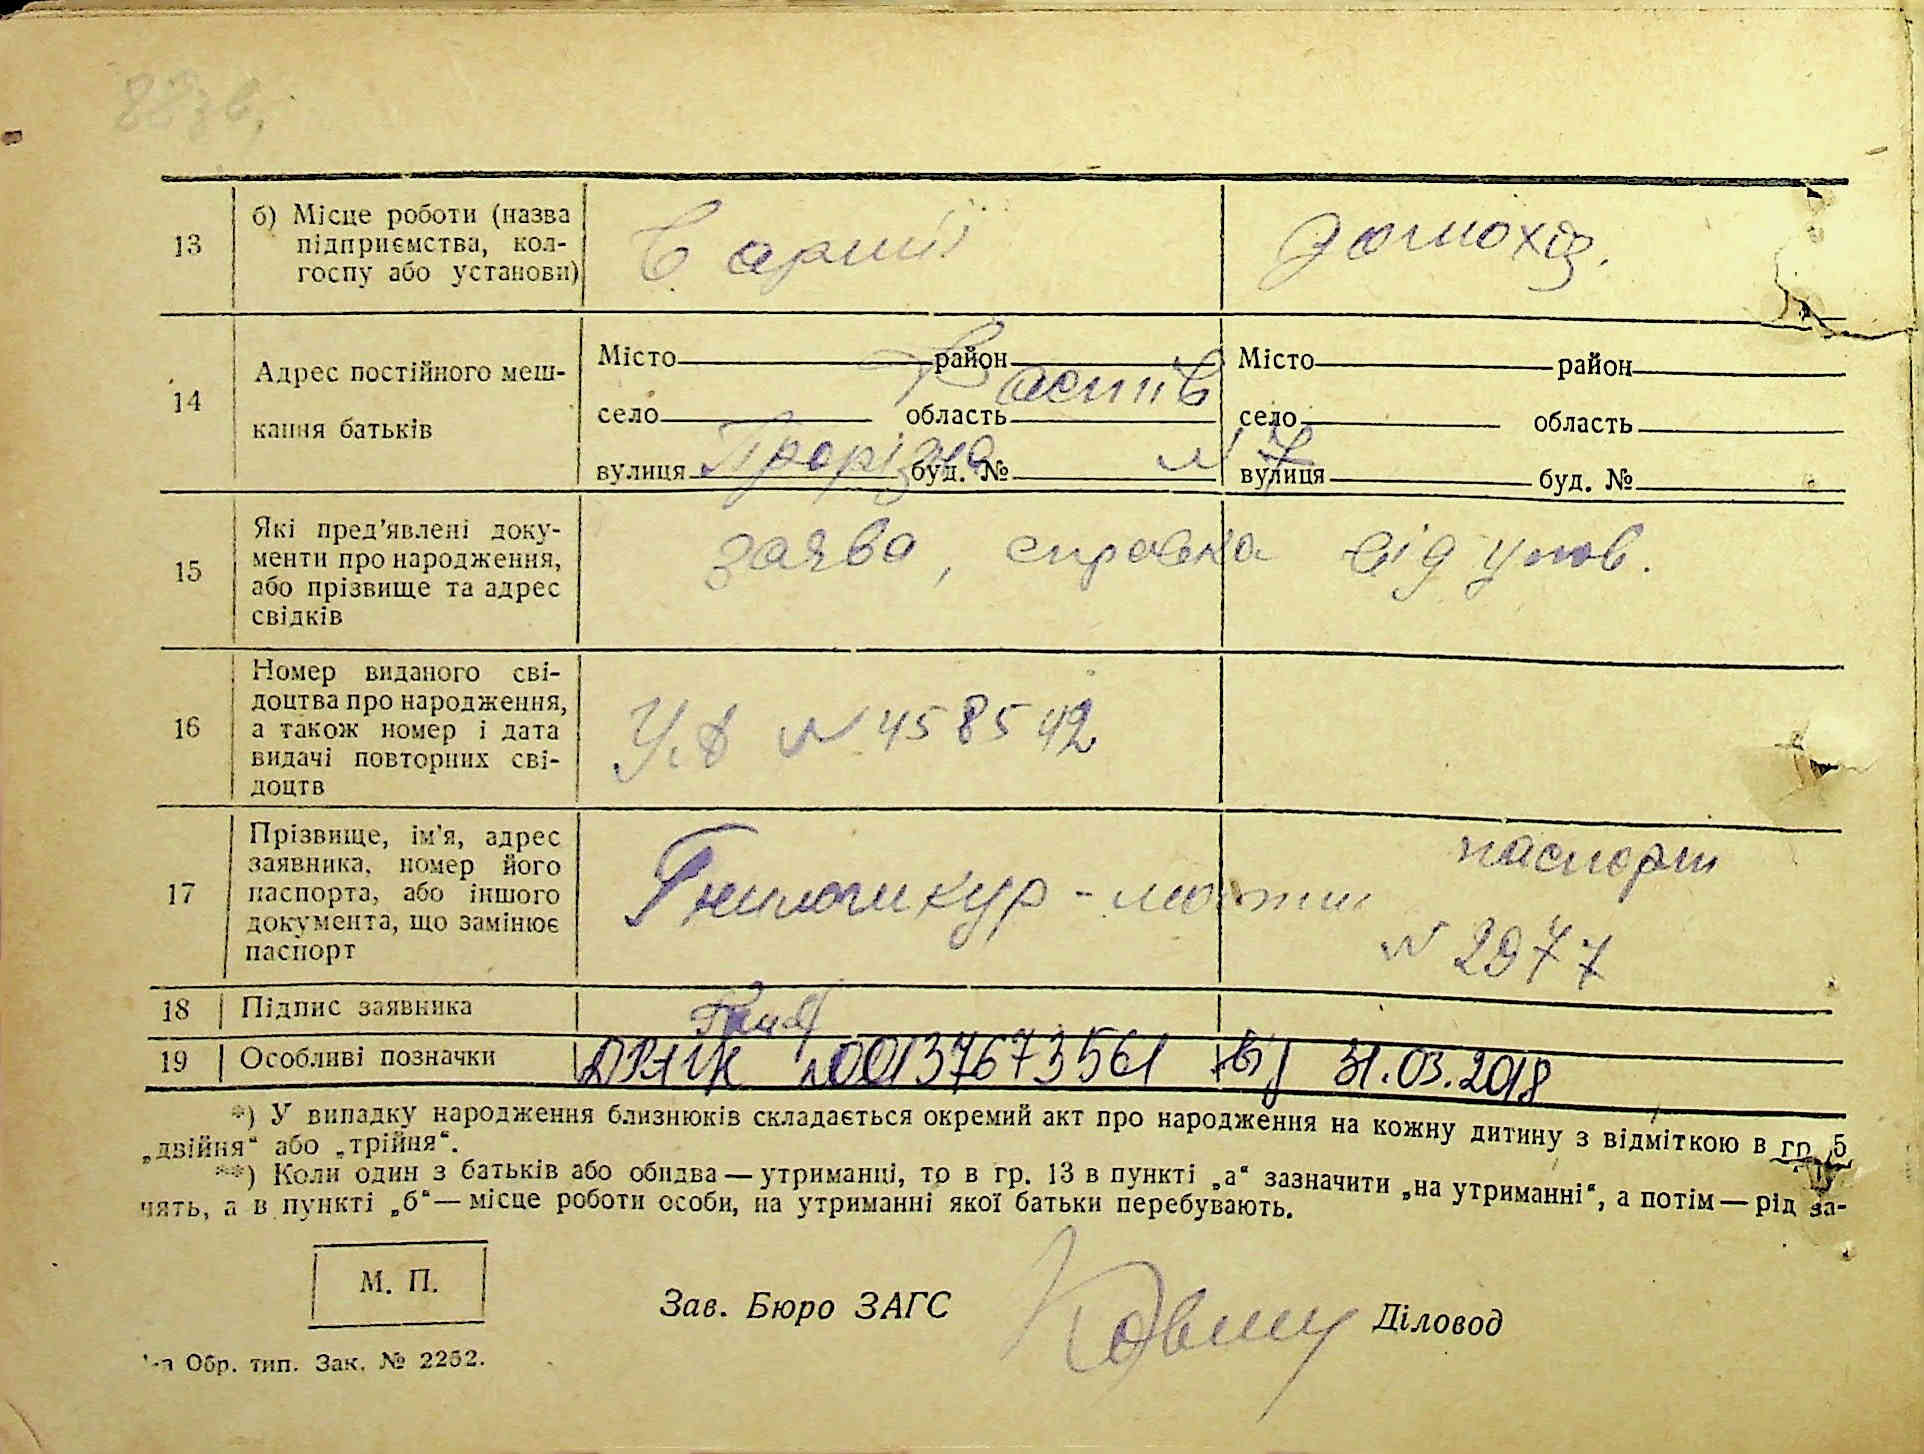 13
б) Місце роботи (назва
підприємства, кол-
госпу або установи)
В армії
домохіз.
14
Адрес постійного меш-
кання батьків
Місто район
Фастів
село область
вулиця Прорізна буд. № N 7
Місто район
село область
вулиця буд. №
15
Які пред'явлені доку-
менти про народження,
або прізвище та адрес
свідків
заява, справка від упов.
16
Номер виданого сві-
доцтва про народження,
а також номер і дата
видачі повторних сві-
доцтв
N 458542
17
Прізвище, ім'я, адрес
заявника, номер його
паспорта, або іншого
документа, що замінює
паспорт
- мати паспорт
N 2977
18 Підпис заявника
19 Особливі позначки
ДРАЦС 00137673561 від 31.03.2018
*) У випадку народження близнюків складається окремий акт про народження на кожну дитину з відміткою в гр. 5
„двійня“ або „трійня“.
**) Коли один з батьків або обидва — утриманці, то в гр. 13 в пункті „а“ зазначити „на утриманні“, а потім — рід за-
нять, а в пункті „б“ — місце роботи особи, на утриманні якої батьки перебувають.
М. П.
Зав. Бюро ЗАГС Діловод
Обр. тип. Зак. № 2252.